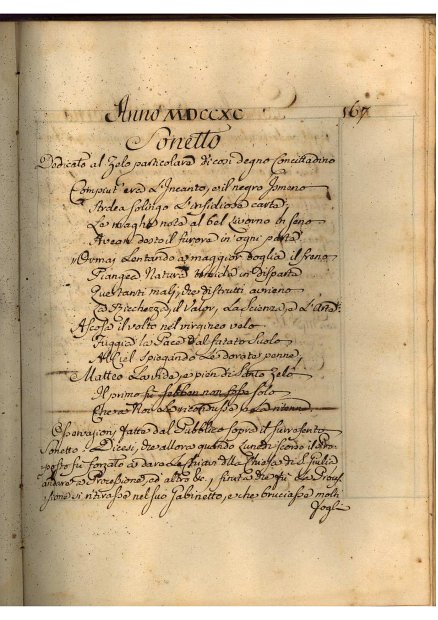 Anno MDCCXC 167
Sonetto
Dedicato al Zelo particolare di così degno Concittadino
Compiut' era l'Incanto, e il negro Imeno
Ardea solingo l'insidiose carte;
Le maghe note al bel Livorno in seno
Avean desto il furore in ogni parte.
Ormai lentando a maggior doglia il freno
Piangea Natura in disparte
Che tanti mali, che distrutti avieno
La Ricchezza, il Valor, la Scienza, e l'Arte.
Ascosa il volto nel virgineo velo
Fuggia la Pace dal fatato suolo
Al Ciel spiegando le dorate penne,
Matteo la vide, e pien di Santo Zelo
Il primo fù sebben non fosse solo
Che a Noi la e la
Osservazioni fatte dal Pubblico sopra il surresento
Sonetto. Dicesi, che allora quando Lunedì scorso il Pro-
posto fù forzato a dare le chiavi della Chiesa di S. Giulia
andare a Processione, ed altro &c., finita che fù la Proces-
sione si ritirasse nel suo Gabinetto, e che bruciasse molti
Fogli